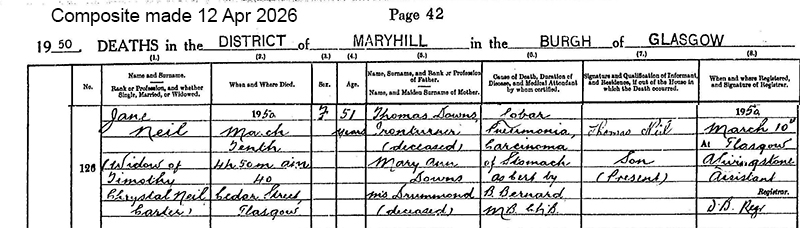 Composite made 12 Apr 2026
Page 42
1950. DEATHS in the DISTRICT of MARYHILL in the BURGH of GLASGOW
No.
(1.)
Name and Surname.
Rank or Profession, and whether
Single, Married, or Widowed.
(2.)
When and Where Died.
(3.)
Sex.
(4.)
Age.
(5.)
Name, Surname, and Rank or Profession
of Father.
Name, and Maiden Surname of Mother.
(6.)
Cause of Death, Duration of
Disease, and Medical Attendant
by whom certified.
(7.)
Signature and Qualification of Informant,
and Residence, if out of the House in
which the Death occurred.
(8.)
When and where Registered,
and Signature of Registrar.
126
Jane
Neil
(Widow of
Timothy
Chrystal Neil
Carter)
1950
March
Tenth
4h 50m am
40
Cedar Street,
Glasgow
F
51
years
Thomas Downs,
Ironturner
(deceased)
Mary Ann
Downs
m/s Drummond
(deceased)
Lobar
Pneumonia,
Carcinoma
of Stomach
as cert by
B. Bernard
M.B. Ch.B.
Thomas Neil
Son
(Present)
1950
March 10th
At Glasgow
A Livingstone
Assistant
Registrar.
D.B. Regr